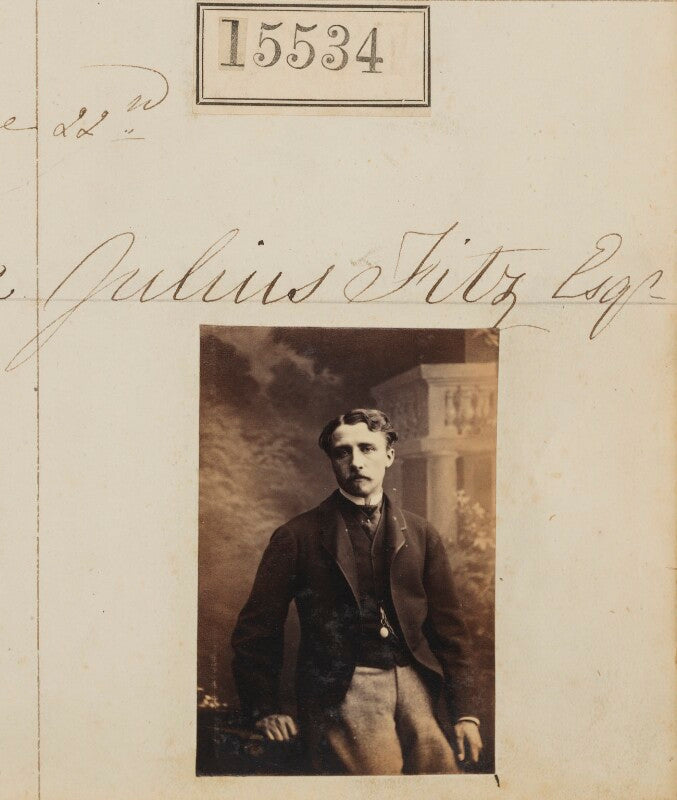 15534
22nd
Julius Fitz Esqr